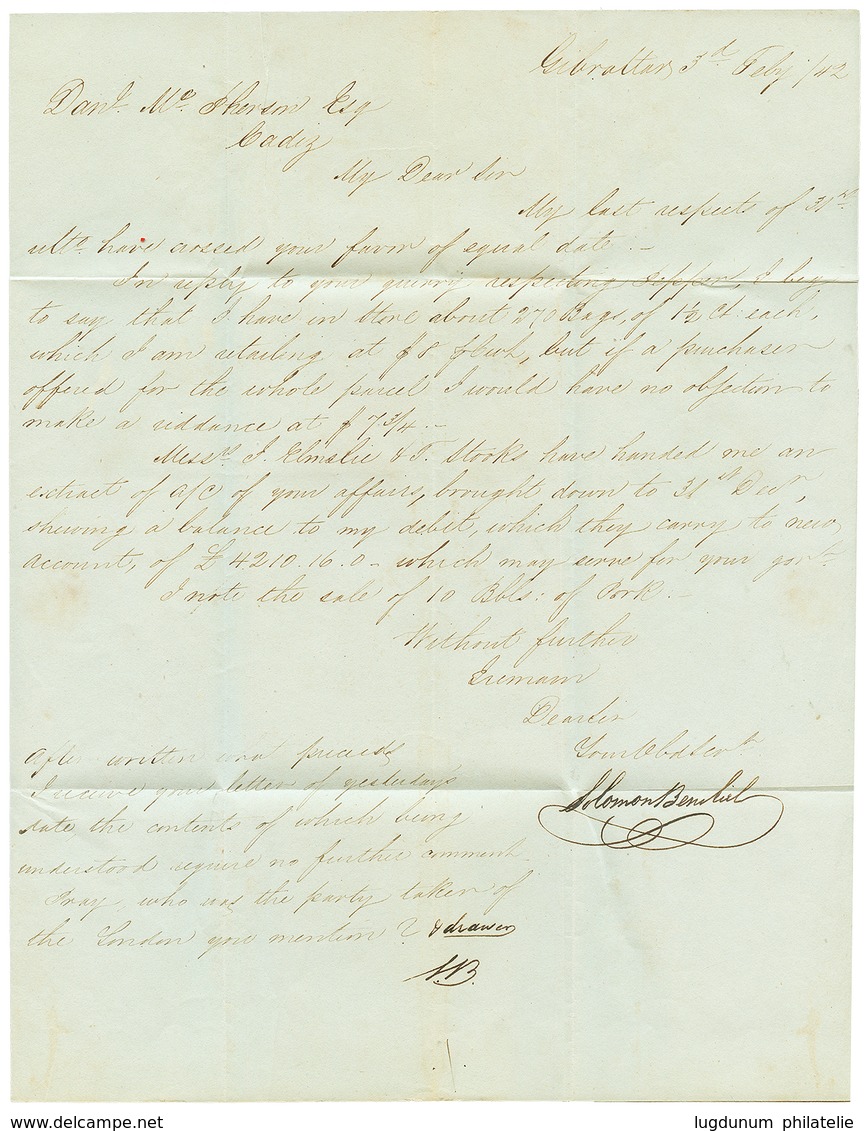 Gibraltar 3d Feby /42
Danl. Mc. Pherson Esq
Cadiz
My Dear Sir
My last respects of 31st
ulto. have crossed your favor of equal date. -
In reply to your querry respecting Pepper, I beg
to say that I have in Store about 270 Bags, of 1½ Ct: each,
which I am retailing at $8 $Cwt, but if a purchaser
offered for the whole parcel I would have no objection to
make a riddance at $ 7 3/4. -
Messrs. J. Elmslie & T. Stooks have handed me an
extract of a/c of your affairs, brought down to 31st Decr,
shewing a balance to my debit, which they carry to new
account, of £ 4210.16.0 - which may serve for your govt.
I note the sale of 10 Bbls: of Pork. -
Without further
I remain
Dear Sir
Your Obd Servt.
Solomon Benoliel
After written and
I receive your letter of yesterday's
date the contents of which being
understood require no further comment
Pray, who was the party taker of
the London you mention ? & drawer
S.B.
lugdunum philatelie